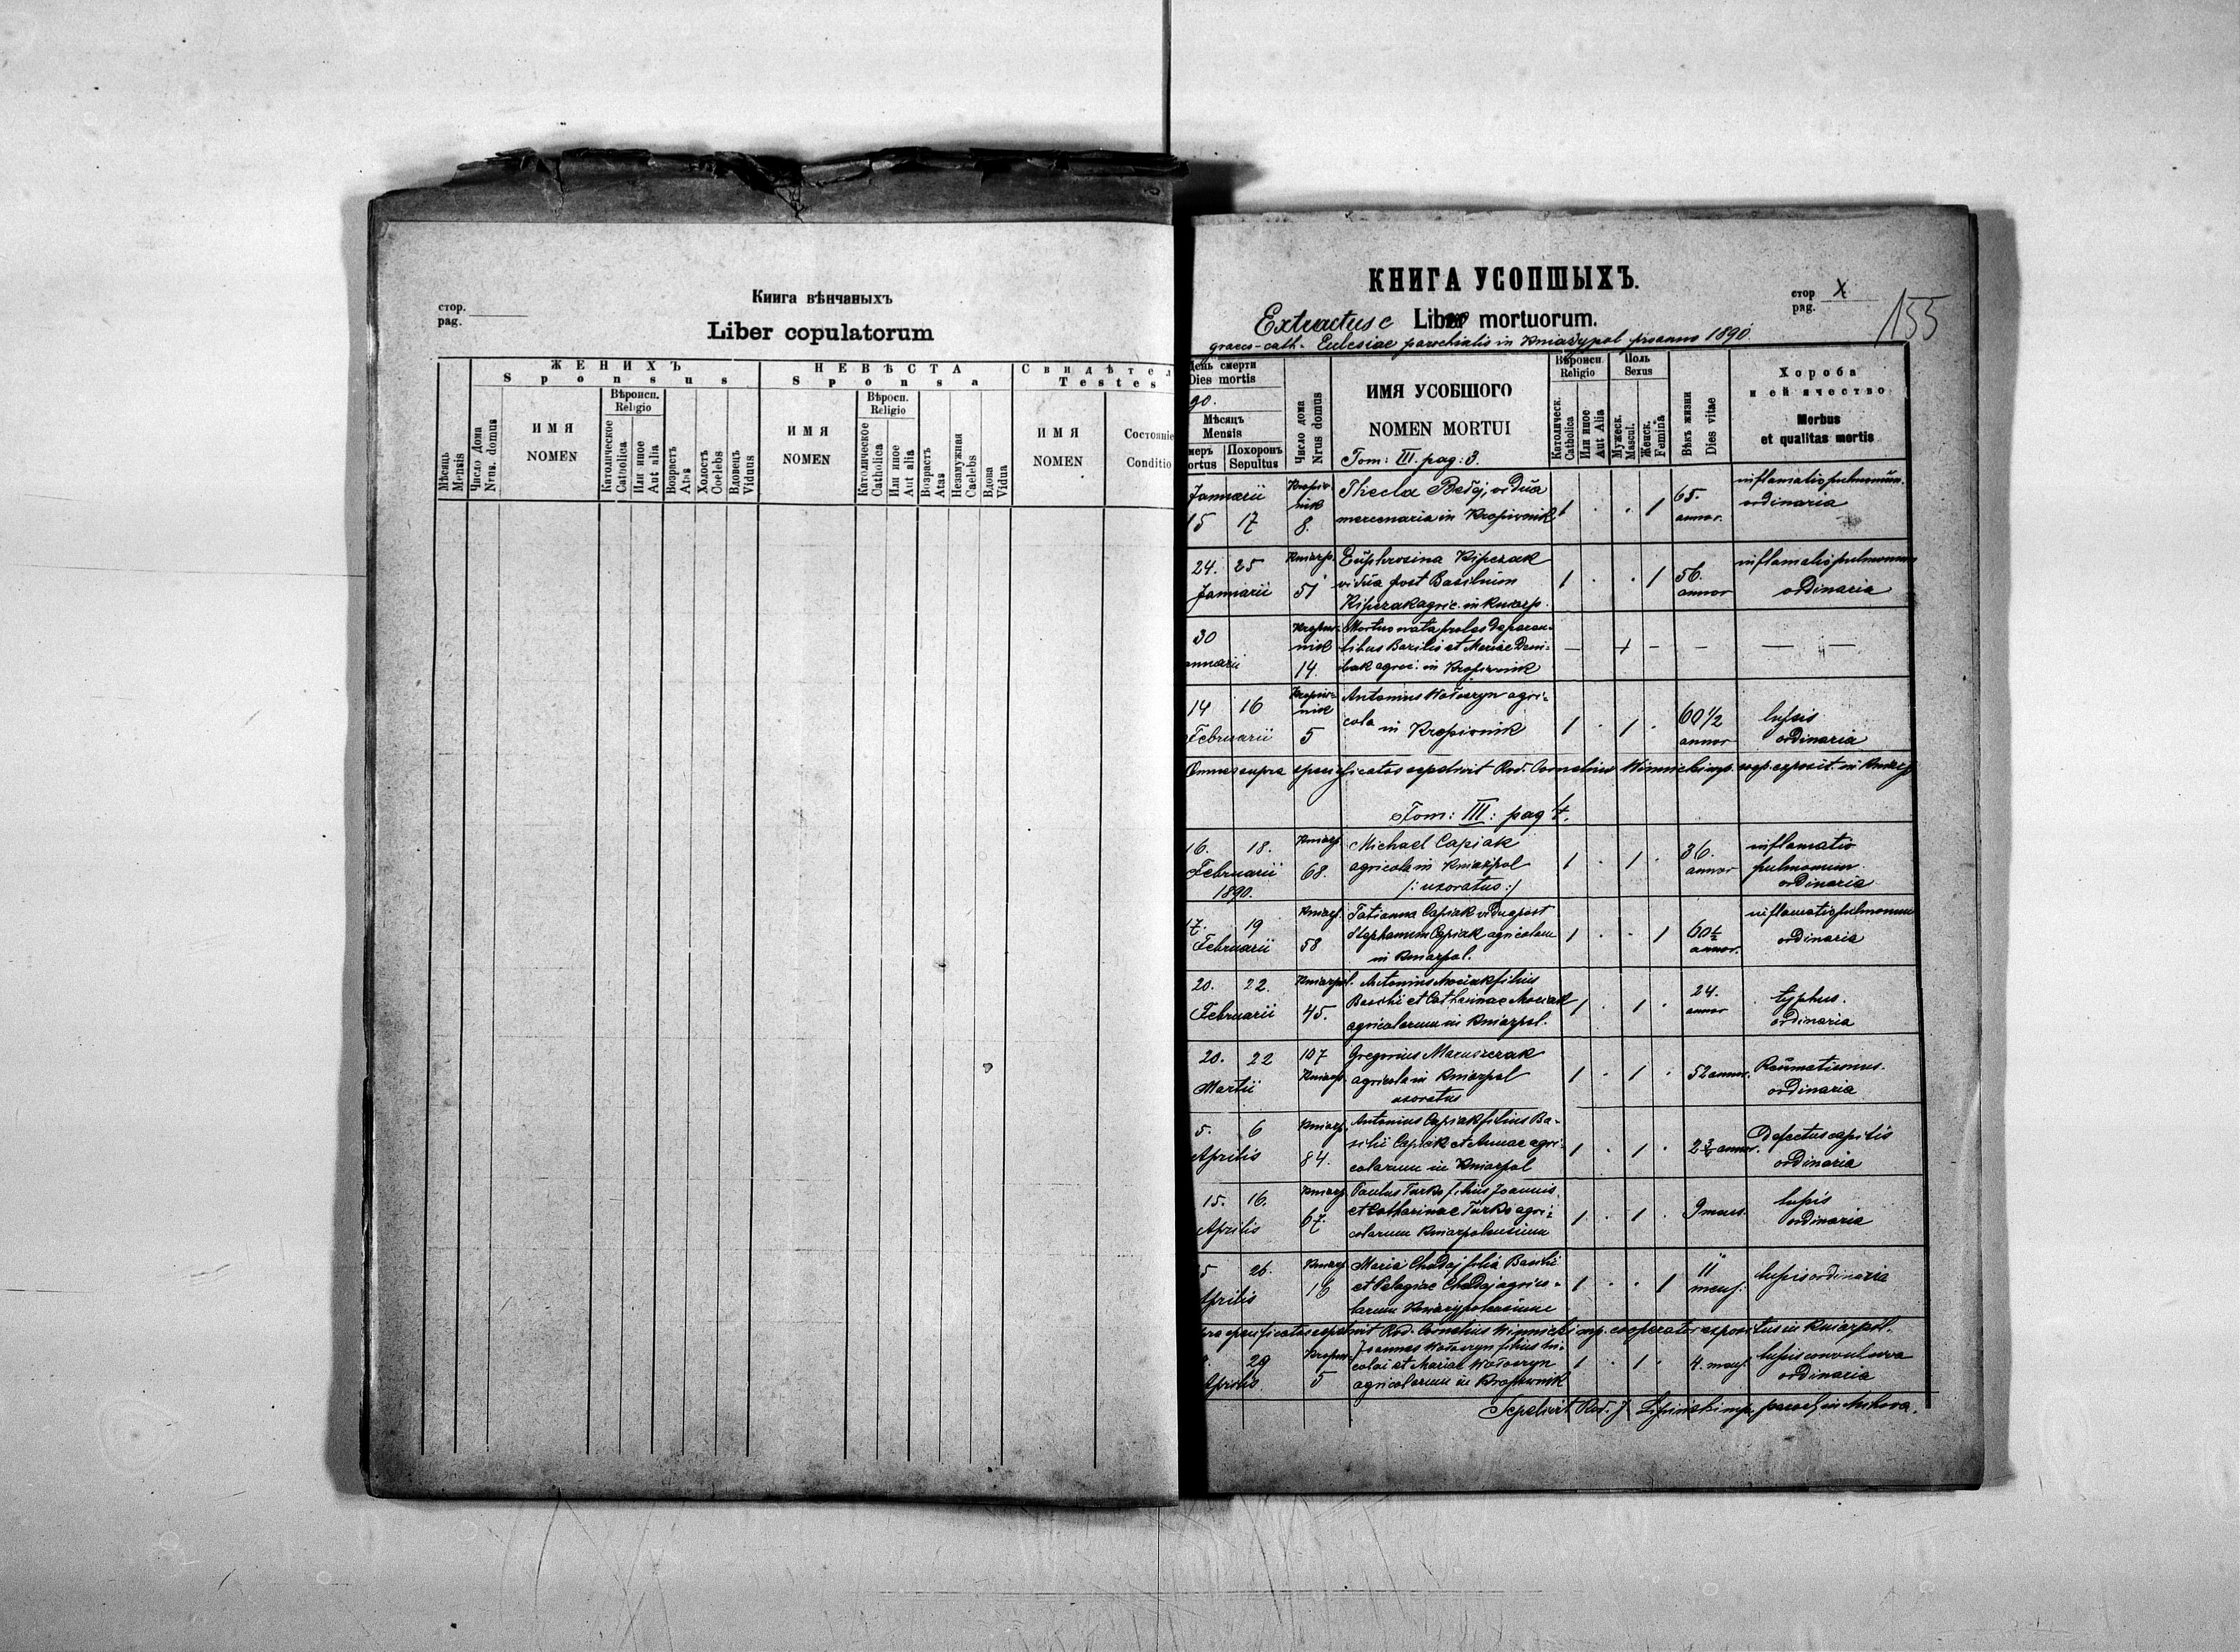 Книга вѣнчаныхъ
стор.
pag.
Liber copulatorum
ЖЕНИХЪ
Sponsus
НЕВѢСТА
Sponsa
Свидѣтел
Testes
Мѣсяць
Mensis
Число Дома
Nrus. domus
ИМЯ
NOMEN
Вѣроисп.
Religio
Католическое
Catholica
Или иное
Aut alia
Возрастъ
Atas
Холость
Coelebs
Вдовець
Viduus
ИМЯ
NOMEN
Вѣросп.
Religio
Католическое
Catholica
Или иное
Aut alia
Возрастъ
Atas
Незамужная
Caelebs
Вдова
Vidua
ИМЯ
NOMEN
Состояніе
Conditio
КНИГА УСОПШЫХЪ.
стор X
pag.
155
Extractus e Libro mortuorum.
graeco-cath. Eclesiae parochialis in Kniażypol pro anno 1890
День смерти
Dies mortis
90.
Мѣсяцъ
Mensis
меръ
ortus
Похоронъ
Sepultus
Число дома
Nrus domus
ИМЯ УСОБШОГО
NOMEN MORTUI
Tom: III. pag: 3.
Вѣроисп.
Religio
Католическ.
Catholica
Или иное
Aut Alia
Поль
Sexus
Мужеск.
Mascul.
Женск.
Femina
Вѣкъ жизни
Dies vitae
Хороба
и ей ячество
Morbus
et qualitas mortis
Januarii
15 17
Kropiw-
nik
8.
Thecla Bełej, vidua
mercenaria in Kropiwnik
1 . . 1
65.
annor.
inflamatio pulmonum.
ordinaria
24. 25
Januarii
Kniazp.
51
Euphrosina Kipczak
vidua post Basilium
Kipczak agric. in Kniazp.
1 . . 1
56.
annor
inflamatio pulmonum
ordinaria
30
anuarii
Kropiw-
nik
14.
Mortuo nata proles de paren-
tibus Basilio et Mariae
agric. in Kropiwnik
14 16
Februarii
Kropiw-
nik
5
Antonius Wołoszyn agri-
cola in Kropiwnik
1 . 1 .
60 1/2
annor
lussis
ordinaria
Omnes supra specificatos sepelivit Rvd. Cornelius Winnicki mp. coop. exposit. in Kniazp
Tom: III: pag 4.
16. 18.
Februarii
1890.
Kniazp
68.
Michael Capiak
agricola in Kniazpol
/: uxoratus :/
1 . 1 .
36.
annor
inflamatio
pulmonum
ordinaria
17. 19
Februarii
Kniazp.
58
Tatianna Capiak vidua post
Stephanum Capiak agricolam
in Kniazpol.
1 . . 1
60 1/2
annor.
inflamatio pulmonum
ordinaria
20. 22.
Februarii
Kniazpol.
45.
Antonius Mociak filius
Basilii et Catharinae Mociak
agricolarum in Kniazpol.
1 . 1 .
24.
annor
typhus.
ordinaria
20. 22
Martii
107
Kniazp.
Gregorius Maruszczak
agricola in Kniazpol
uxoratus
1 . 1 .
52 annor.
Raumatismus.
ordinaria
5. 6
Aprilis
Kniazp.
84.
Antonius Capiak filius Ba-
silii Capiak et Annae agri-
colarum in Kniazpol
1 . 1 .
annor.
Defectus capitis
ordinaria
15. 16.
Aprilis
Kniazp
67.
Paulus Turko filius Joannis
et Catharinae Turko agri-
colarum Kniazpolensium
1 . 1 .
9 mens.
ordinaria
5 26.
Aprilis
Kniazp
16
Maria Chadaj filia Basilii
et Pelagiae Chadaj agrico-
larum Kniazypolensium
1 . . 1
11
mens:
ordinaria
pra specificatos sepelivit Rvd. Cornelius Winnicki mp. cooperator expositus in Kniazpol.
29
Aprilis
Kropiw.
5
Joannes Wołoszyn filius Ni-
colai et Mariae Wołoszyn
agricolarum in Kropiwnik
1 . 1 .
4. mens.
convulsiva
ordinaria
Sepelivit Rvd. J. Lipiński mp. paroch. in